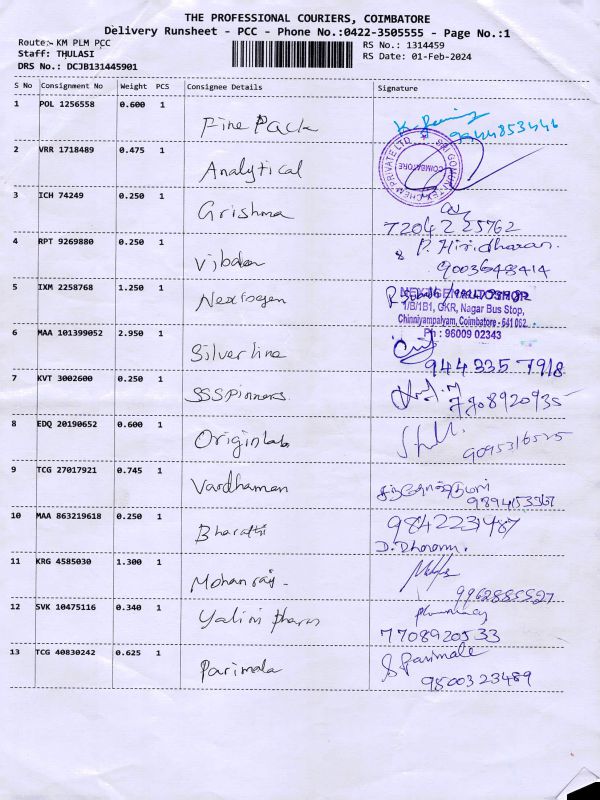 THE PROFESSIONAL COURIERS, COIMBATORE
Delivery Runsheet - PCC - Phone No.:0422-3505555 - Page No.:1
Route:- KM PLM PCC
RS No.: 1314459
Staff: THULASI
RS Date: 01-Feb-2024
DRS No.: DCJB131445901
S No Consignment No Weight PCS Consignee Details Signature
1 POL 1256558 0.600 1 Fine Pack
2 VRR 1718489 0.475 1 Analytical
COIMBATORE
3 ICH 74249 0.250 1 Grishma
7204225762
4 RPT 9269880 0.250 1 P. Hiridharan.
9003643414
5 IXM 2258768 1.250 1 Nexrogen
1/B/1B1, GKR, Nagar Bus Stop,
Chinniyampalyam, Coimbatore - 641 062.
Ph : 96009 02343
6 MAA 101399052 2.950 1 Silver line
944 335 7918
7 KVT 3002600 0.250 1 SSSpinners.
7708920935
8 EDQ 20190652 0.600 1 Origin lab
9095316525
9 TCG 27017921 0.745 1 Vardhaman
10 MAA 863219618 0.250 1 Bharathi
9842223487
D. Dharani.
11 KRG 4585030 1.300 1 Mohanraj -
9962885527
12 SVK 10475116 0.340 1 Yalini Pharm
pharmacy
7708920533
13 TCG 40830242 0.625 1 Parimala
S Parimale
9500323489